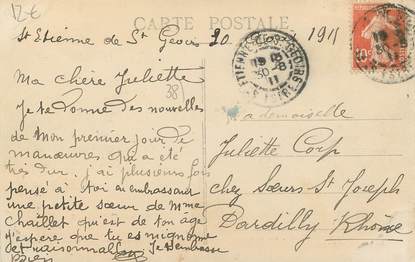 12€
CARTE POSTALE
St Etienne de St Geoirs 30 1911
Ma chère Juliette
38
Je te donne des nouvelles
de mon premier jour de
manœuvres qui a été
très dur. j'ai plusieurs fois
pensé à toi en embrassant
une petite sœur de Mme
Chaillet qui est de ton âge
J'espère que tu es mignonne
et raisonnable Je t'embrasse
Bien
ST ETIENNE-DE-ST-GEOIRS
30 -8
11
ISERE
Mademoiselle
Juliette Corp
chez Sœurs St Joseph
Dardilly Rhône